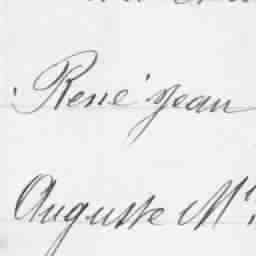 René Jean
Auguste M